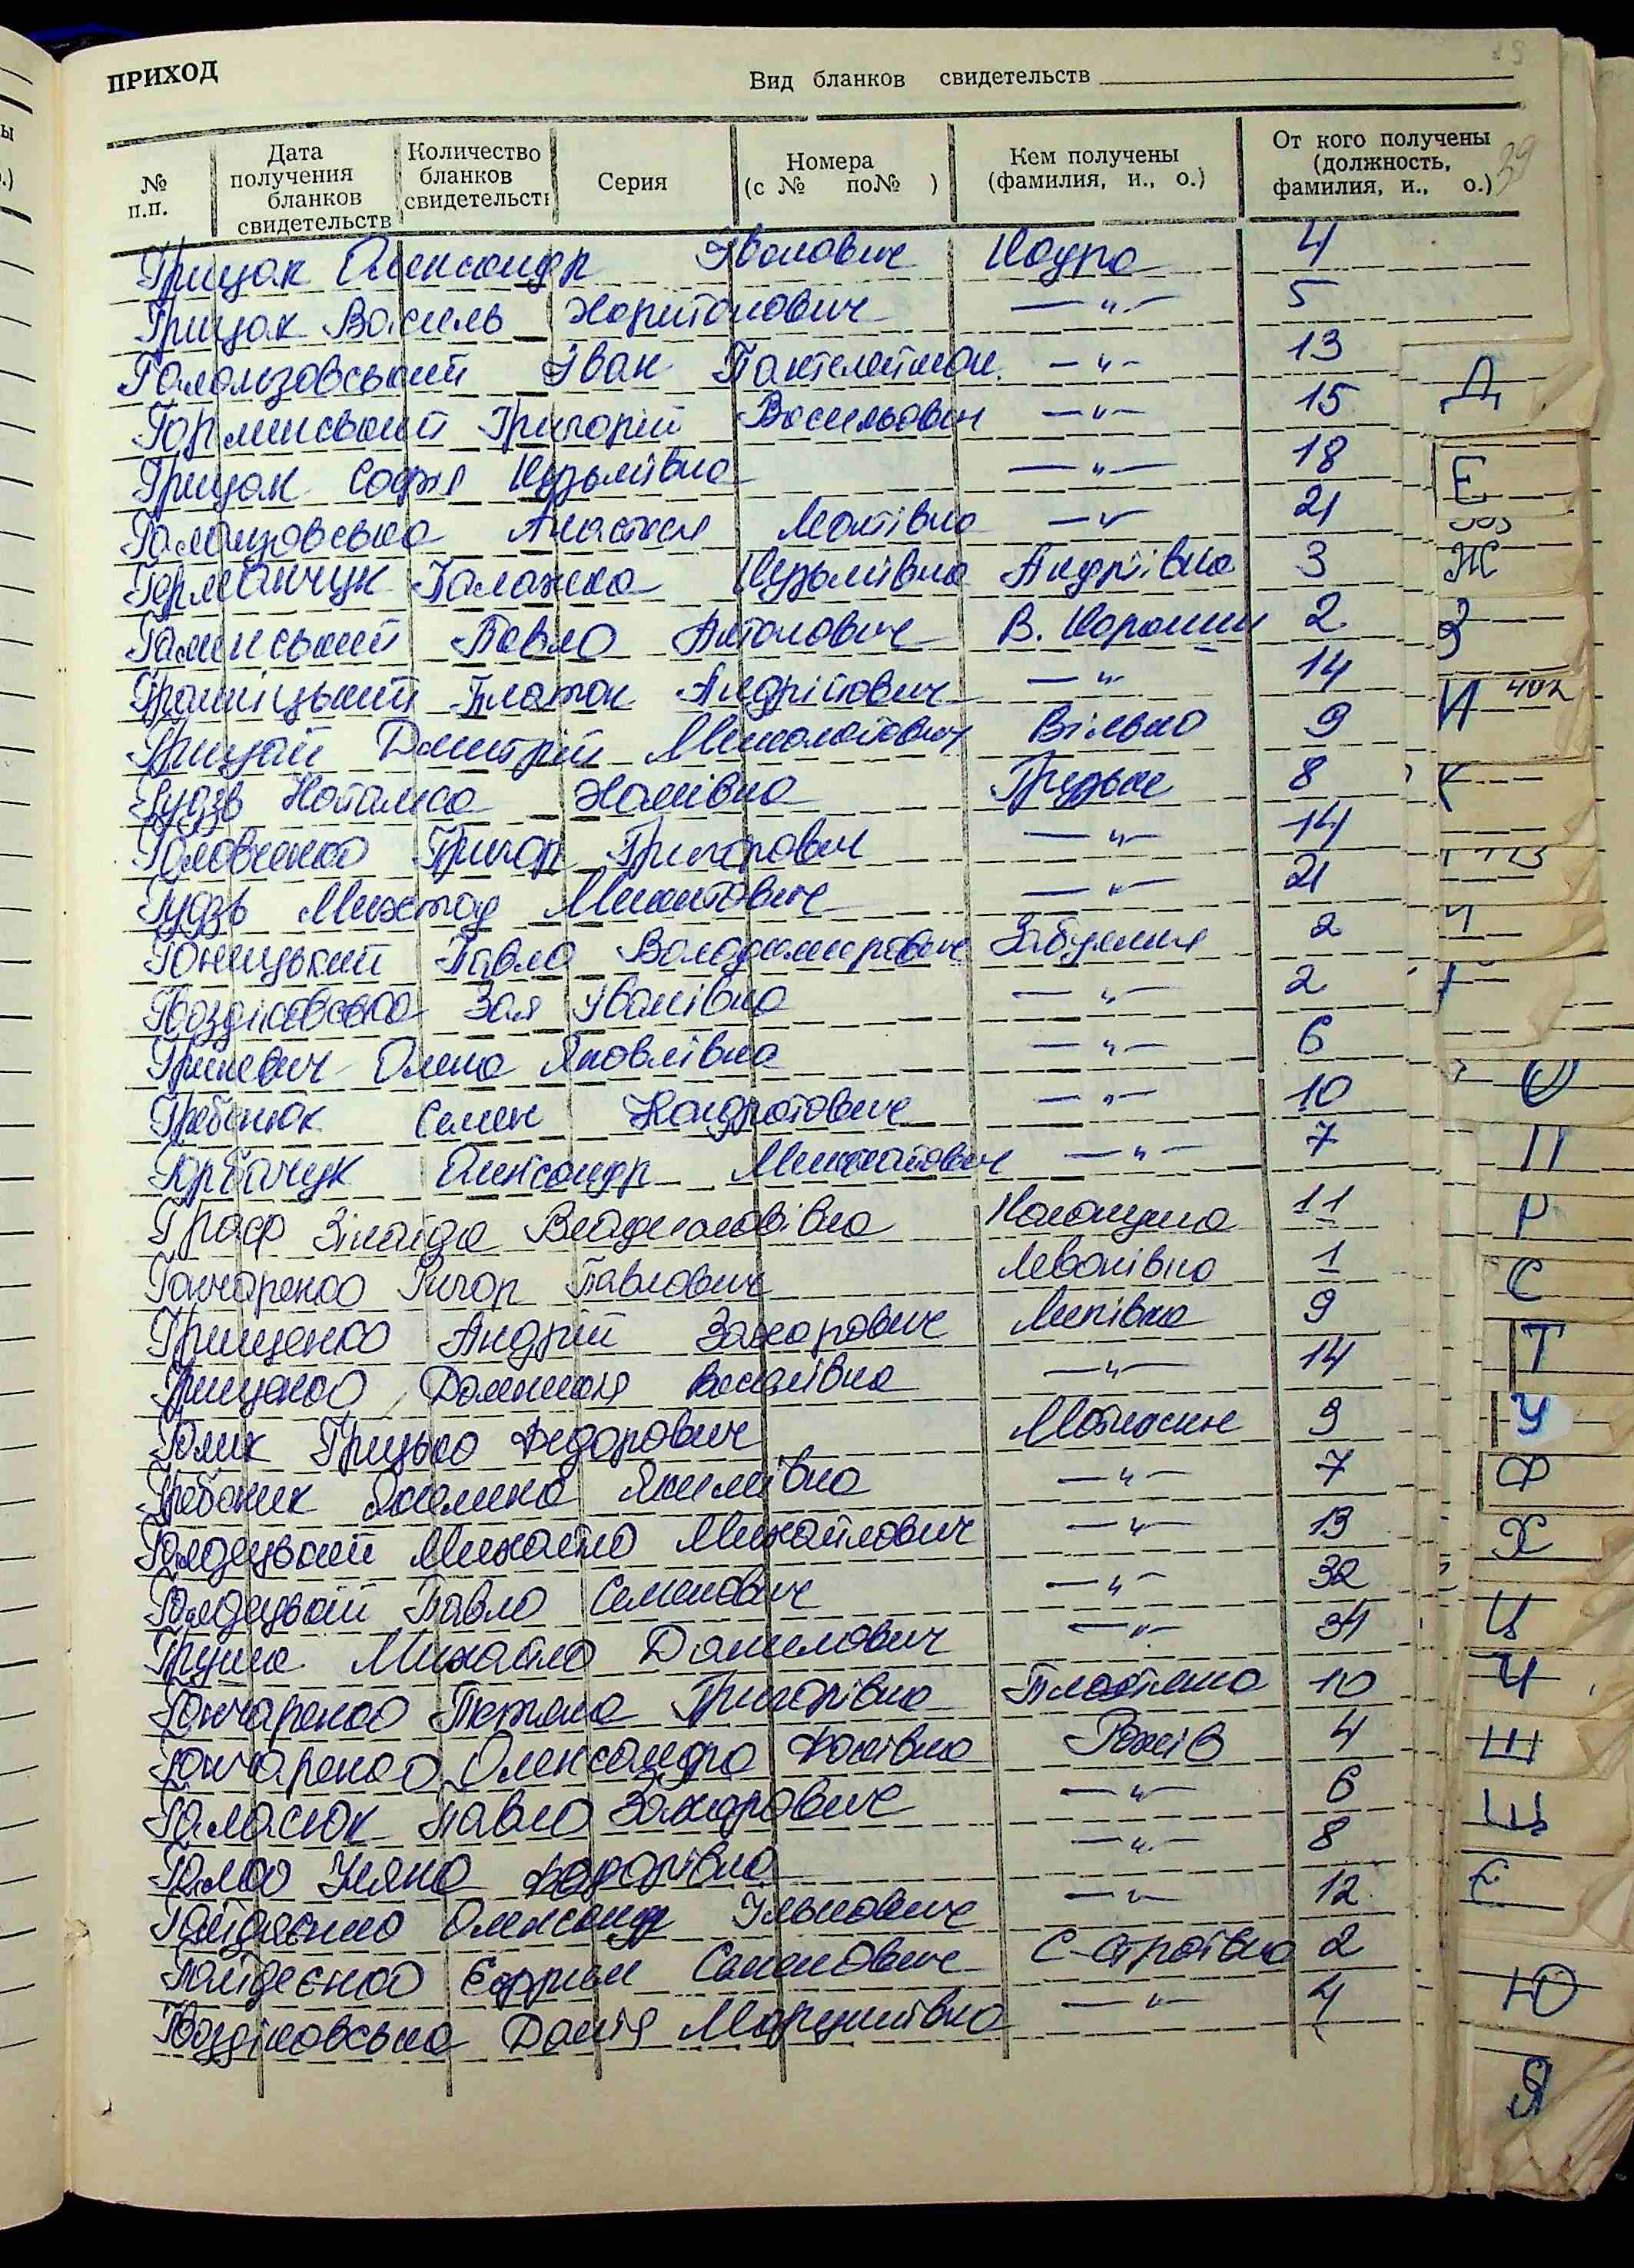 ПРИХОД
Вид бланков свидетельств
№ п.п.
Дата получения бланков свидетельств
Количество бланков свидетельств
Серия
Номера (с № по№ )
Кем получены (фамилия, и., о.)
От кого получены (должность, фамилия, и., о.)
Грицак Олександр Іванович Каура 4
Грицак Василь Харитонович —„— 5
Іван Пантелеймон. —„— 13
Григорій Васильович —„— 15
Грицак Софія Кузьмівна —„— 18
Анастасія —„— 21
Германчук Палажка Кузьмівна Андріївка 3
Галинський Павло Антонович 2
Платон Андрійович —„— 14
Грицай Дмитрій Миколайович Вільно 9
Гудзь Наталка Грузьке 8
Головченко Григор Григорович —„— 14
Гудзь Микитович —„— 21
Гоницький Павло Володимирович Забуяння 2
Гвоздіковська Зоя Іванівна —„— 2
Гриневич Олена Яковлівна —„— 6
Гребенюк Семен Кондратович —„— 10
Горбачук Олександр Михайлович —„— 7
Граф Зінаїда Владиславівна 11
Гончаренко Григор Павлович Леонівка 1
Грищенко Андрій Захарович Липівка 9
Грищенко Василівна —„— 14
Голик Грицько Федорович Мотижин 9
Гребеник Якимівна —„— 7
Михайло Михайлович —„— 13
Павло Семенович —„— 32
Груша Михайло Данилович —„— 34
Гончаренко Тетяна Григорівна 10
Гончаренко Олександра Фоківна Рожів 4
Галасюк Павло Захарович —„— 6
Голко Уляна Федорівна —„— 8
Гайдаєнко Олександр Ількович —„— 12
Гайдаєнко Єфрим Семенович С-Строївка 2
Гвоздіковська Марцинівна —„— 4
Д
Е
Ж
З
И 402
К
О
П
Р
С
Т
У
Ф
Х
Ц
Ч
Ш
Щ
Є
Ю
Я